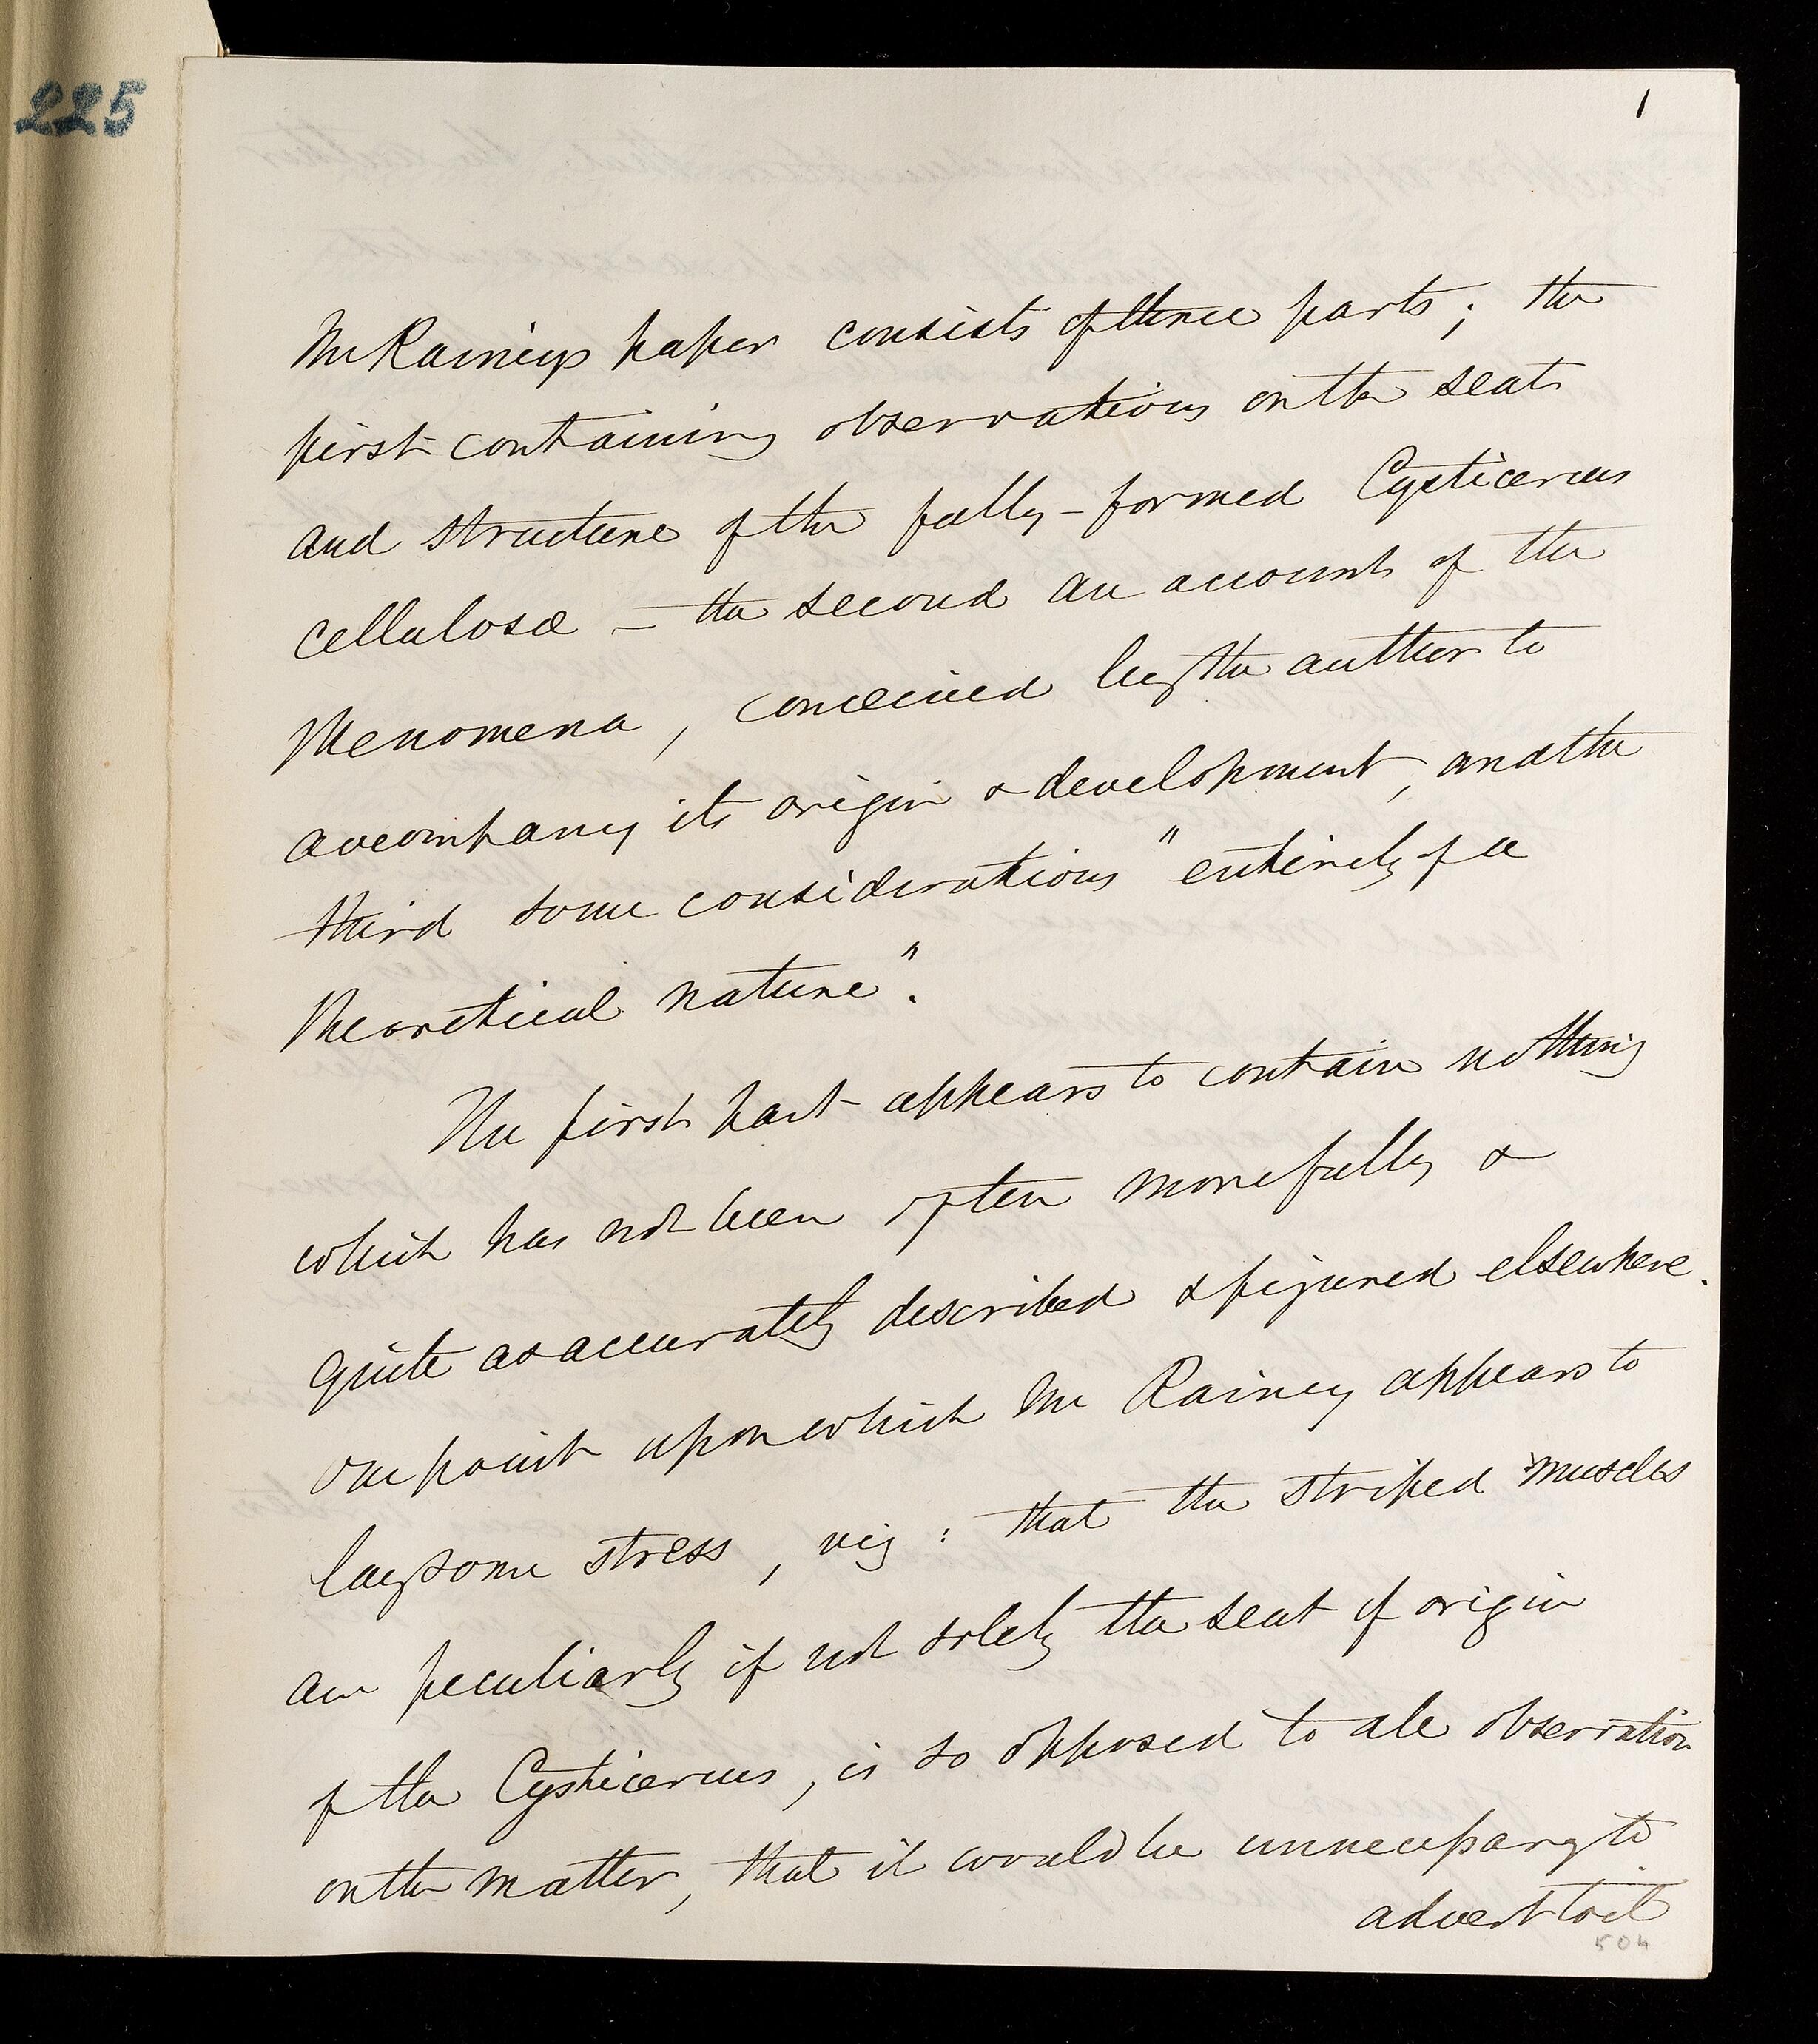 225
1
Mr Rainey's paper consists of three parts; the
first containing observations on the seat
and structure of the fully-formed Cysticercus
cellulosæ – the second an account of the
Phenomena, conceived by the author to
accompany its origin & development, and the
third some considerations "entirely of a
theoretical nature".
The first part appears to contain nothing
which has not been often more fully &
quite as accurately described & figured elsewhere.
One point upon which Mr Rainey appears to
lay some stress, viz: that the striped muscles
are peculiarly if not solely the seat of origin
of the Cysticercus, is so opposed to all observation
on the matter, that it would be unnecessary to
advert to it
504